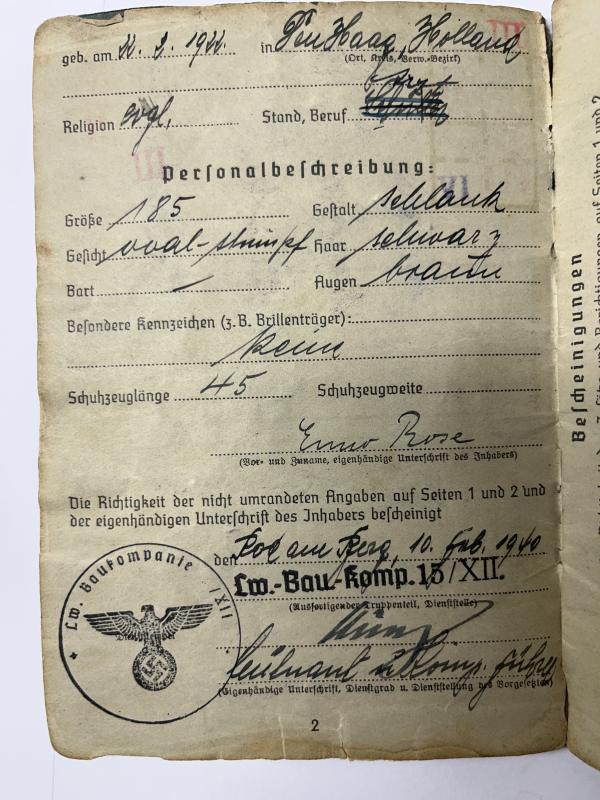 geb. am 22. 2. 1922. in Den Haag, Holland
(Ort, Kreis, Verw.-Bezirk)
Religion evgl. Stand, Beruf
Personalbeschreibung:
Größe 185 Gestalt schlank
Gesicht oval-stumpf Haar schwarz
Bart — Augen braun
Besondere Kennzeichen (z.B. Brillenträger):
keine
Schuhzeuglänge 45 Schuhzeugweite
Enno Rose
(Vor- und Zuname, eigenhändige Unterschrift des Inhabers)
Die Richtigkeit der nicht umrandeten Angaben auf Seiten 1 und 2 und
der eigenhändigen Unterschrift des Inhabers bescheinigt
den Rod am Berg, 10. Feb. 1940
Lw.-Bau-Komp. 15/XII.
(Ausfertigender Truppenteil, Dienststelle)
Leutnant u. Komp. Führer
(Eigenhändige Unterschrift, Dienstgrad u. Dienststellung des Vorgesetzten)
Lw. Baukompanie /XII
2
III
III
Bescheinigungen
auf Seiten 1 und 2